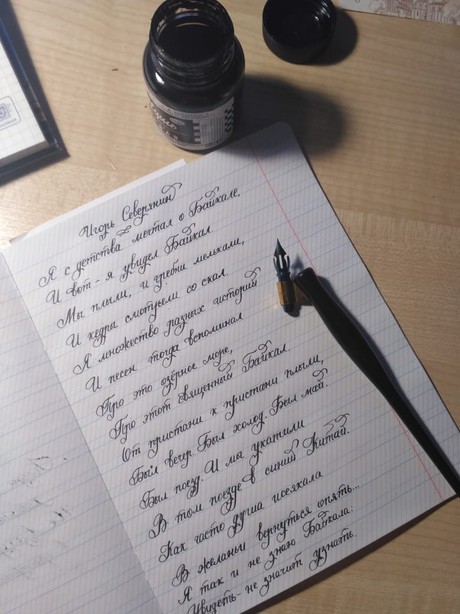 Игорь Северянин
Я с детства мечтал о Байкале,
И вот - я увидел Байкал
Мы плыли, и гребни мелькали,
И кедры смотрели со скал.
Я множество разных историй
И песен тогда вспоминал
Про это озёрное море,
Про этот священный Байкал.
От пристани к пристани плыли,
Был вечер. Был холод. Был май.
Был поезд. И мы укатили
В том поезде в синий Китай.
Как часто душа иссякала
В желаньи вернуться опять...
Я так и не знаю Байкала:
Увидеть - не значит узнать.